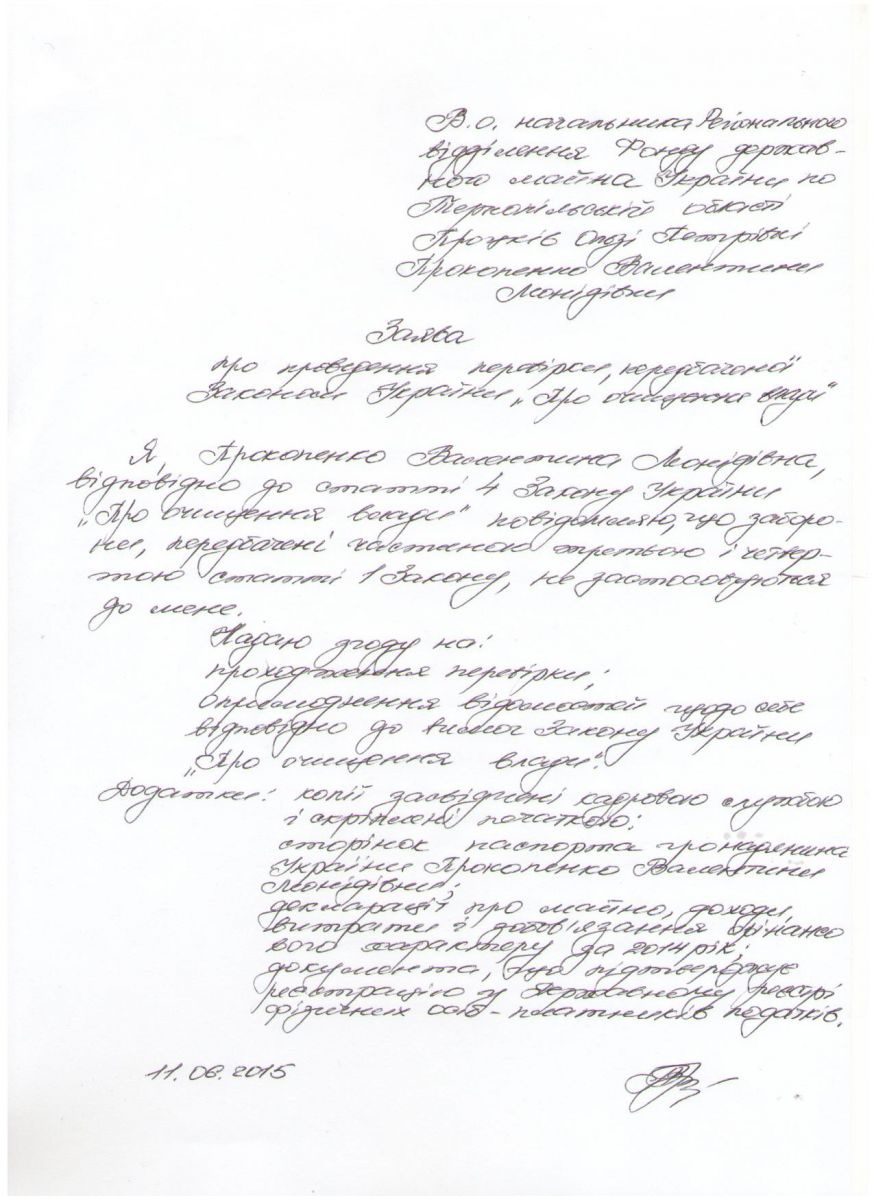 В.о. начальника Регіонального
відділення Фонду держав-
ного майна України по
Тернопільській області
Проців Ользі Петрівні
Прокопенко Валентини
Леонідівни
Заява
про проведення перевірки, передбаченої
Законом України „Про очищення влади"
Я, Прокопенко Валентина Леонідівна,
відповідно до статті 4 Закону України
„Про очищення влади" повідомляю, що заборо-
ни, передбачені частиною третьою і четвер-
тою статті 1 Закону, не застосовуються
до мене.
Надаю згоду на:
проходження перевірки;
оприлюднення відомостей щодо себе
відповідно до вимог Закону України
„Про очищення влади".
Додатки: копії засвідчені кадровою службою
і скріплені печаткою:
сторінок паспорта громадянина
України Прокопенко Валентини
Леонідівни;
декларації про майно, доходи,
витрати і зобов'язання фінансо
вого характеру за 2014 рік;
документа, що підтверджує
реєстрацію у Державному реєстрі
фізичних осіб-платників податків.
11.06.2015